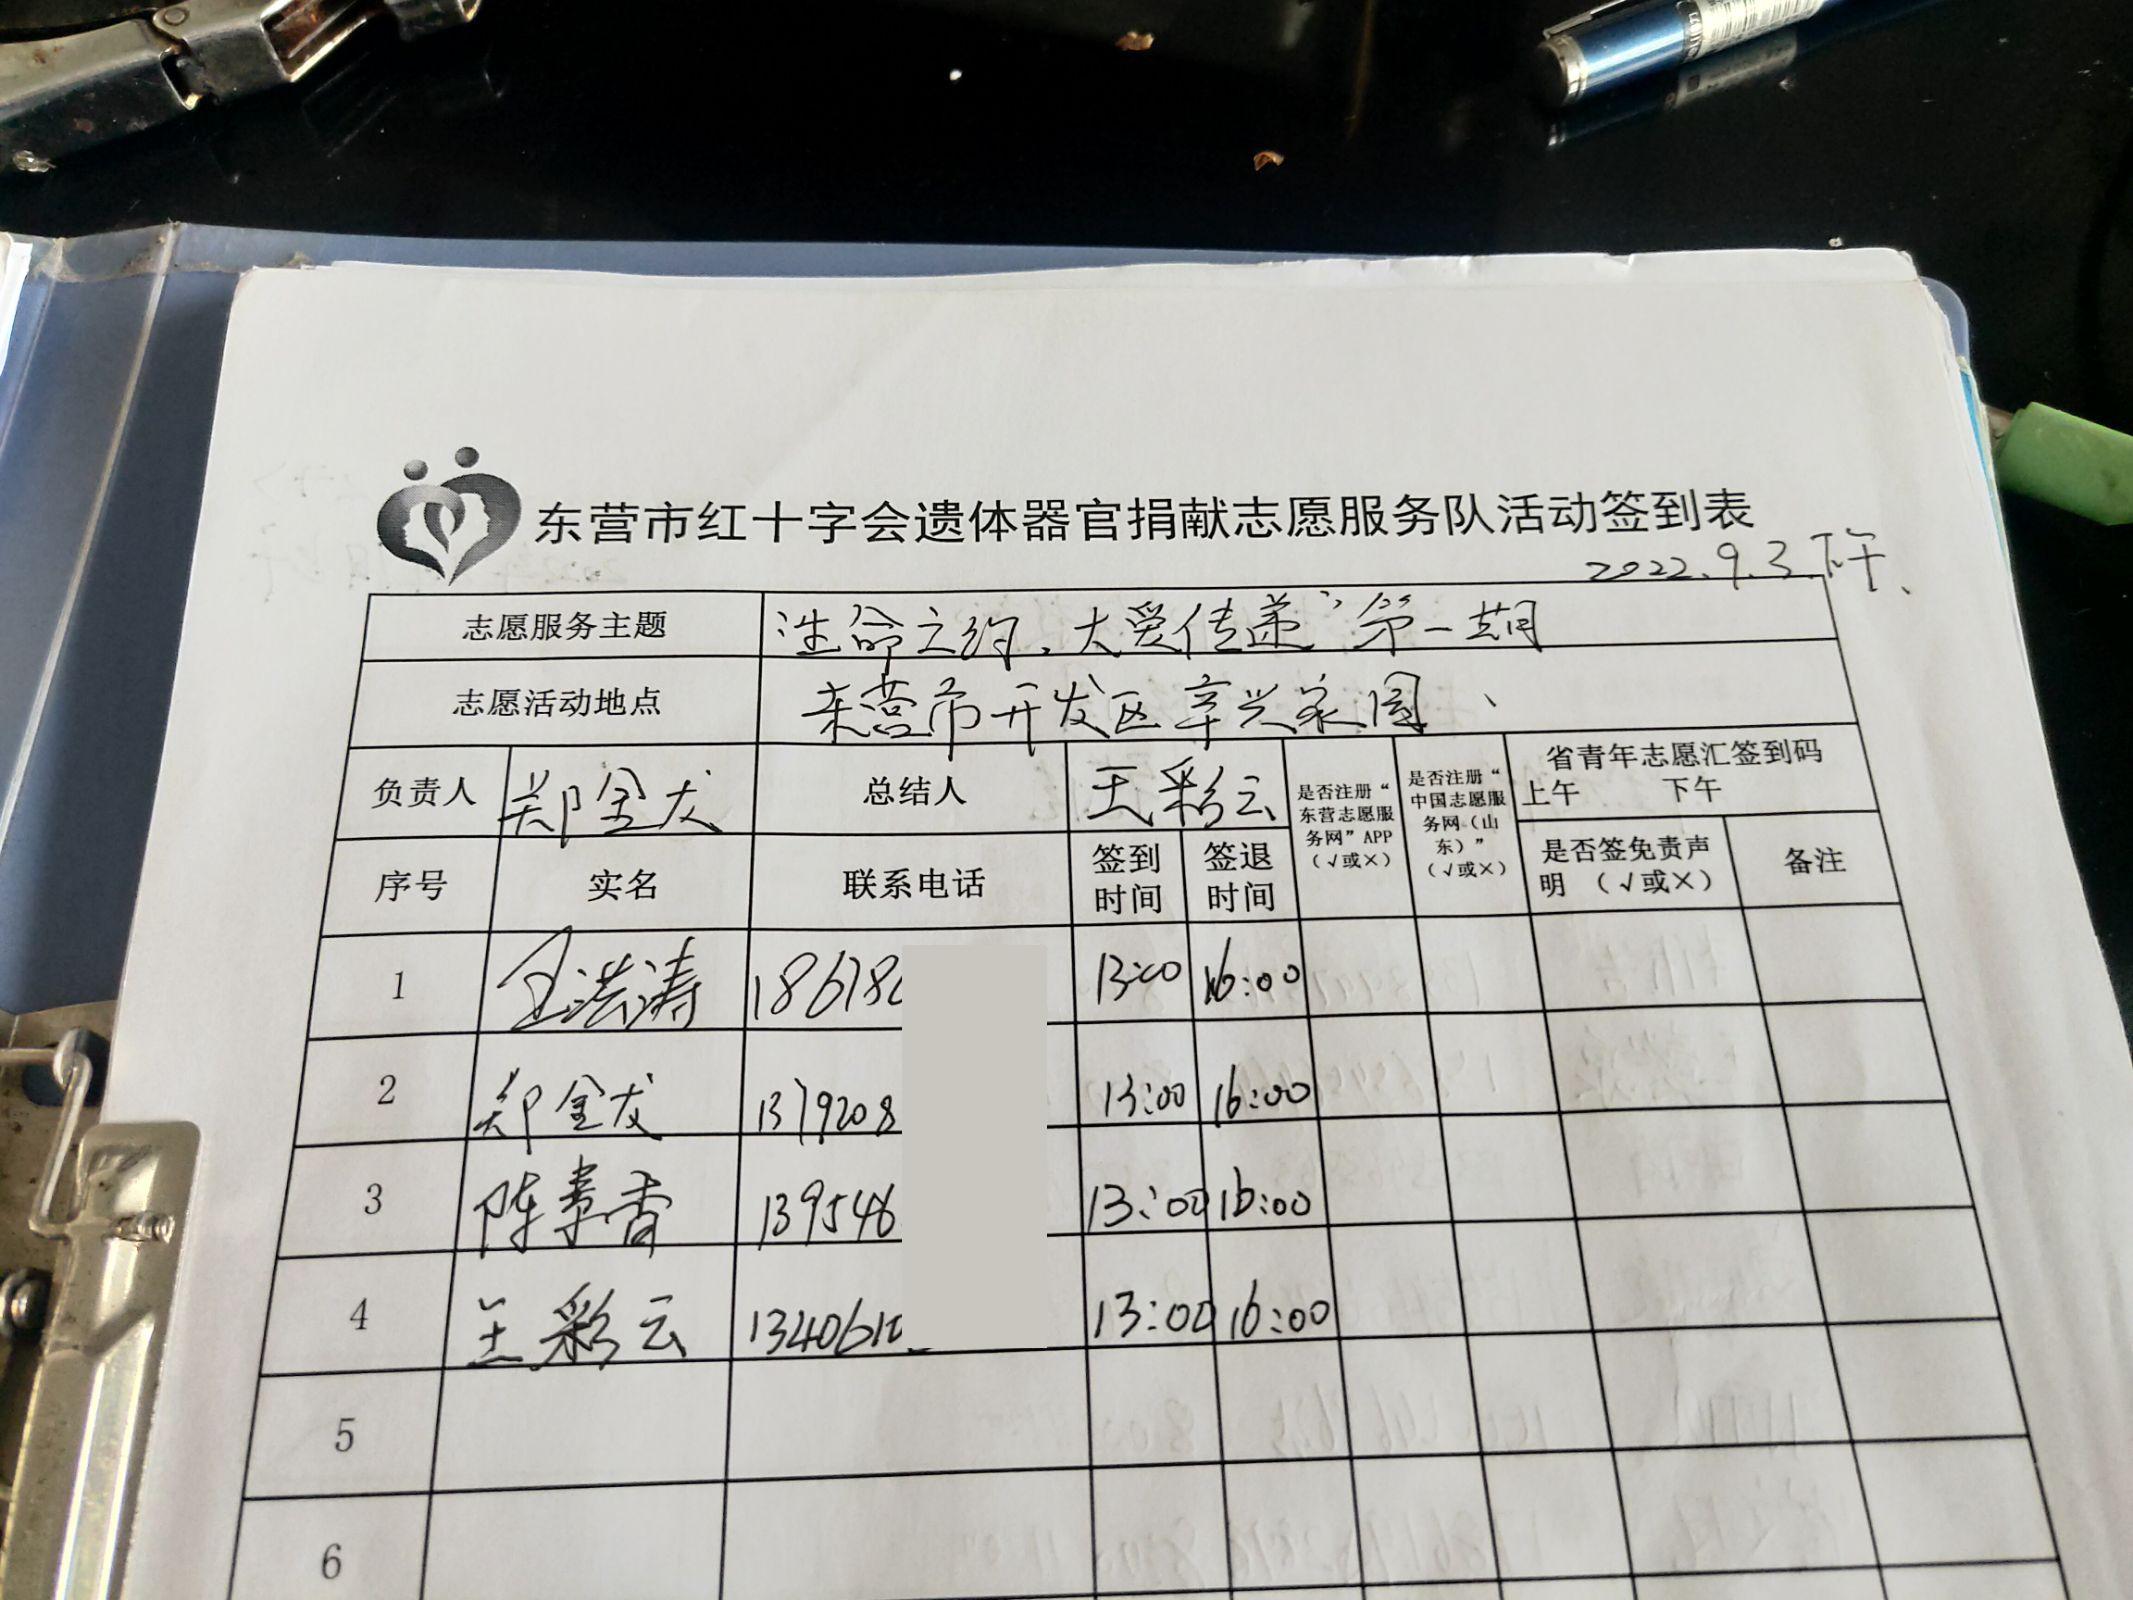 东营市红十字会遗体器官捐献志愿服务队活动签到表
2022.9.3.下午、
志愿服务主题 “生命之约、大爱传递”第一期
志愿活动地点 东营市开发区辛兴家园、
负责人 郑金龙 总结人 王彩云 是否注册“东营志愿服务网”APP（√或×） 是否注册“中国志愿服务网（山东）”（√或×） 省青年志愿汇签到码 上午 下午
序号 实名 联系电话 签到时间 签退时间 是否签免责声明（√或×） 备注
1 王洪涛 18678 13:00 16:00
2 郑金龙 1379208 13:00 16:00
3 陈 香 139546 13:00 16:00
4 王彩云 1340610 13:00 16:00
5
6